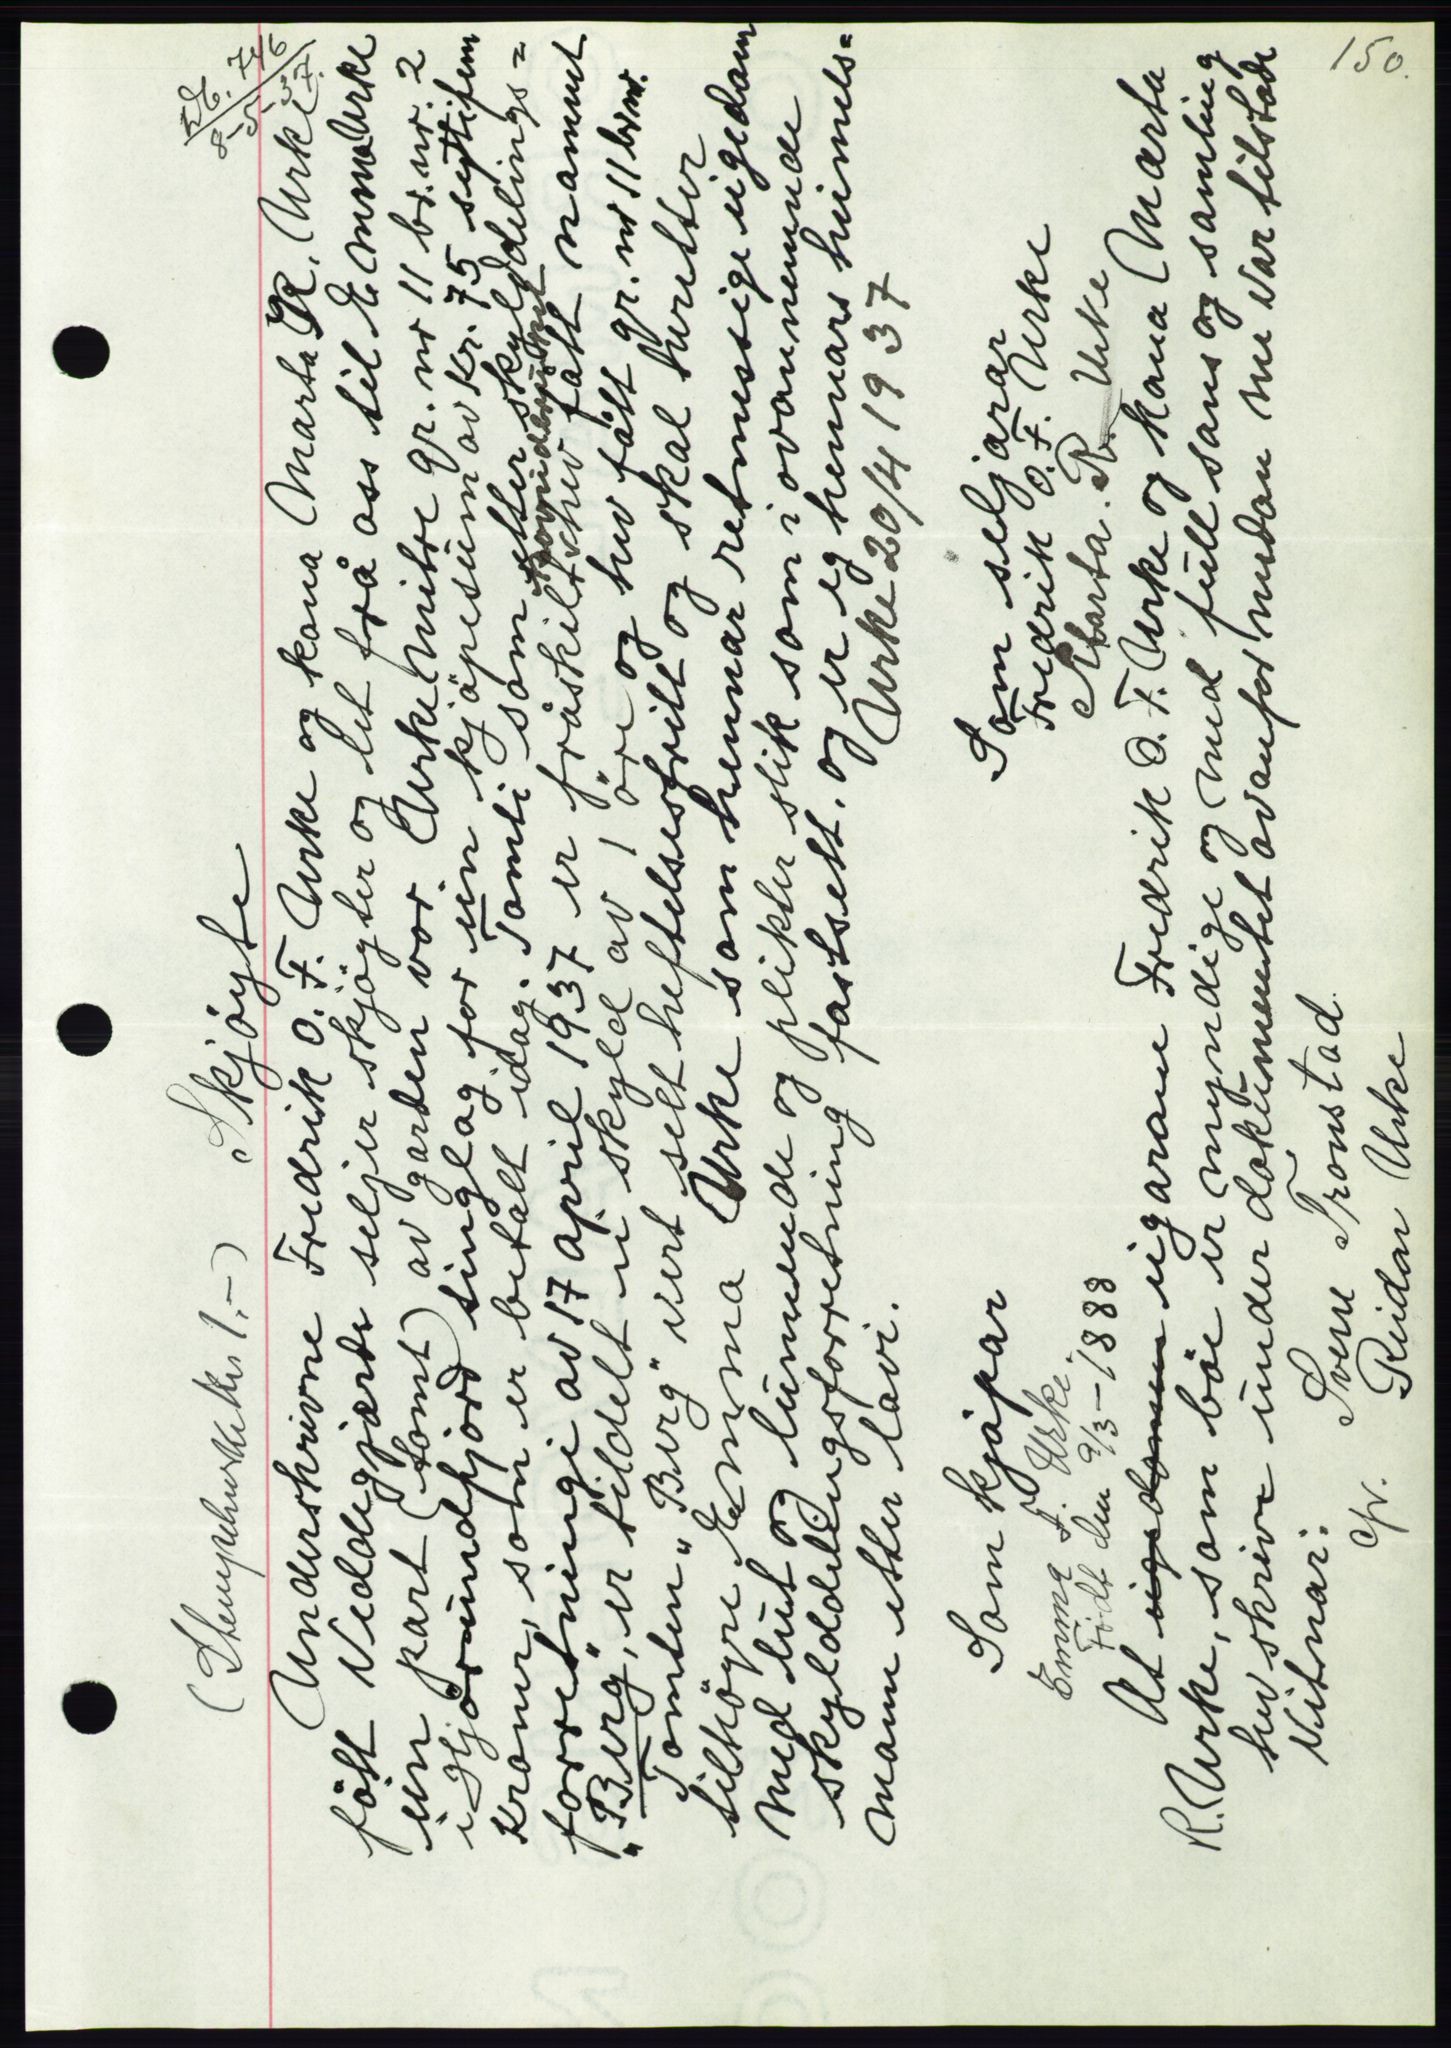 150.
Db. 746
8-5-37.
(Stempelmerke kr. 1.-) Skjøyte
Underskrivne Fredrik O. F. Urke og kona Marta R. Urke
født Viddegjerde seljer skjøyter og let frå oss til Emma Urke
ein part (tomt) av garden vor Urke nitre gr. nr 11 br. nr. 2
i Hjørundfjord tinglag for ein kjøpesum av Kr. 75 syttifem
Kroner, som er betalt idag. Tomti som etter skylddelings=
forretningi av 17 april 1937 er fråskilt hovudbruket hev fått namnet
"Berg", er tildelt ei skyld av 1 øre og hev fått gr. nr 11 br nr.
Tomten "Berg" vert selt heftelsesfritt og skal heretter
tilhøyre Emma Urke som hennar retmessige eigedom
med lut og lunnende og plikter slik som i ovannemnde
skylddelingsforretning fastsett. og er eg hennars heimels=
mann etter lovi.
Urke 20/4 1937
Som kjøpar
Emma F. Urke.
Født den 9/3-1888
Som seljarar
Fredrik O. F. Urke
Marta. R. Urke
At eigedomen eigarane Fredrik O. F. Urke og kona Marta
R. Urke, som båe er myndige og med full sans og samling
hev skrive under dokumentet ovanfor medan me var tilstade
Vitnar: Svere Tronstad.
Reidar Urke